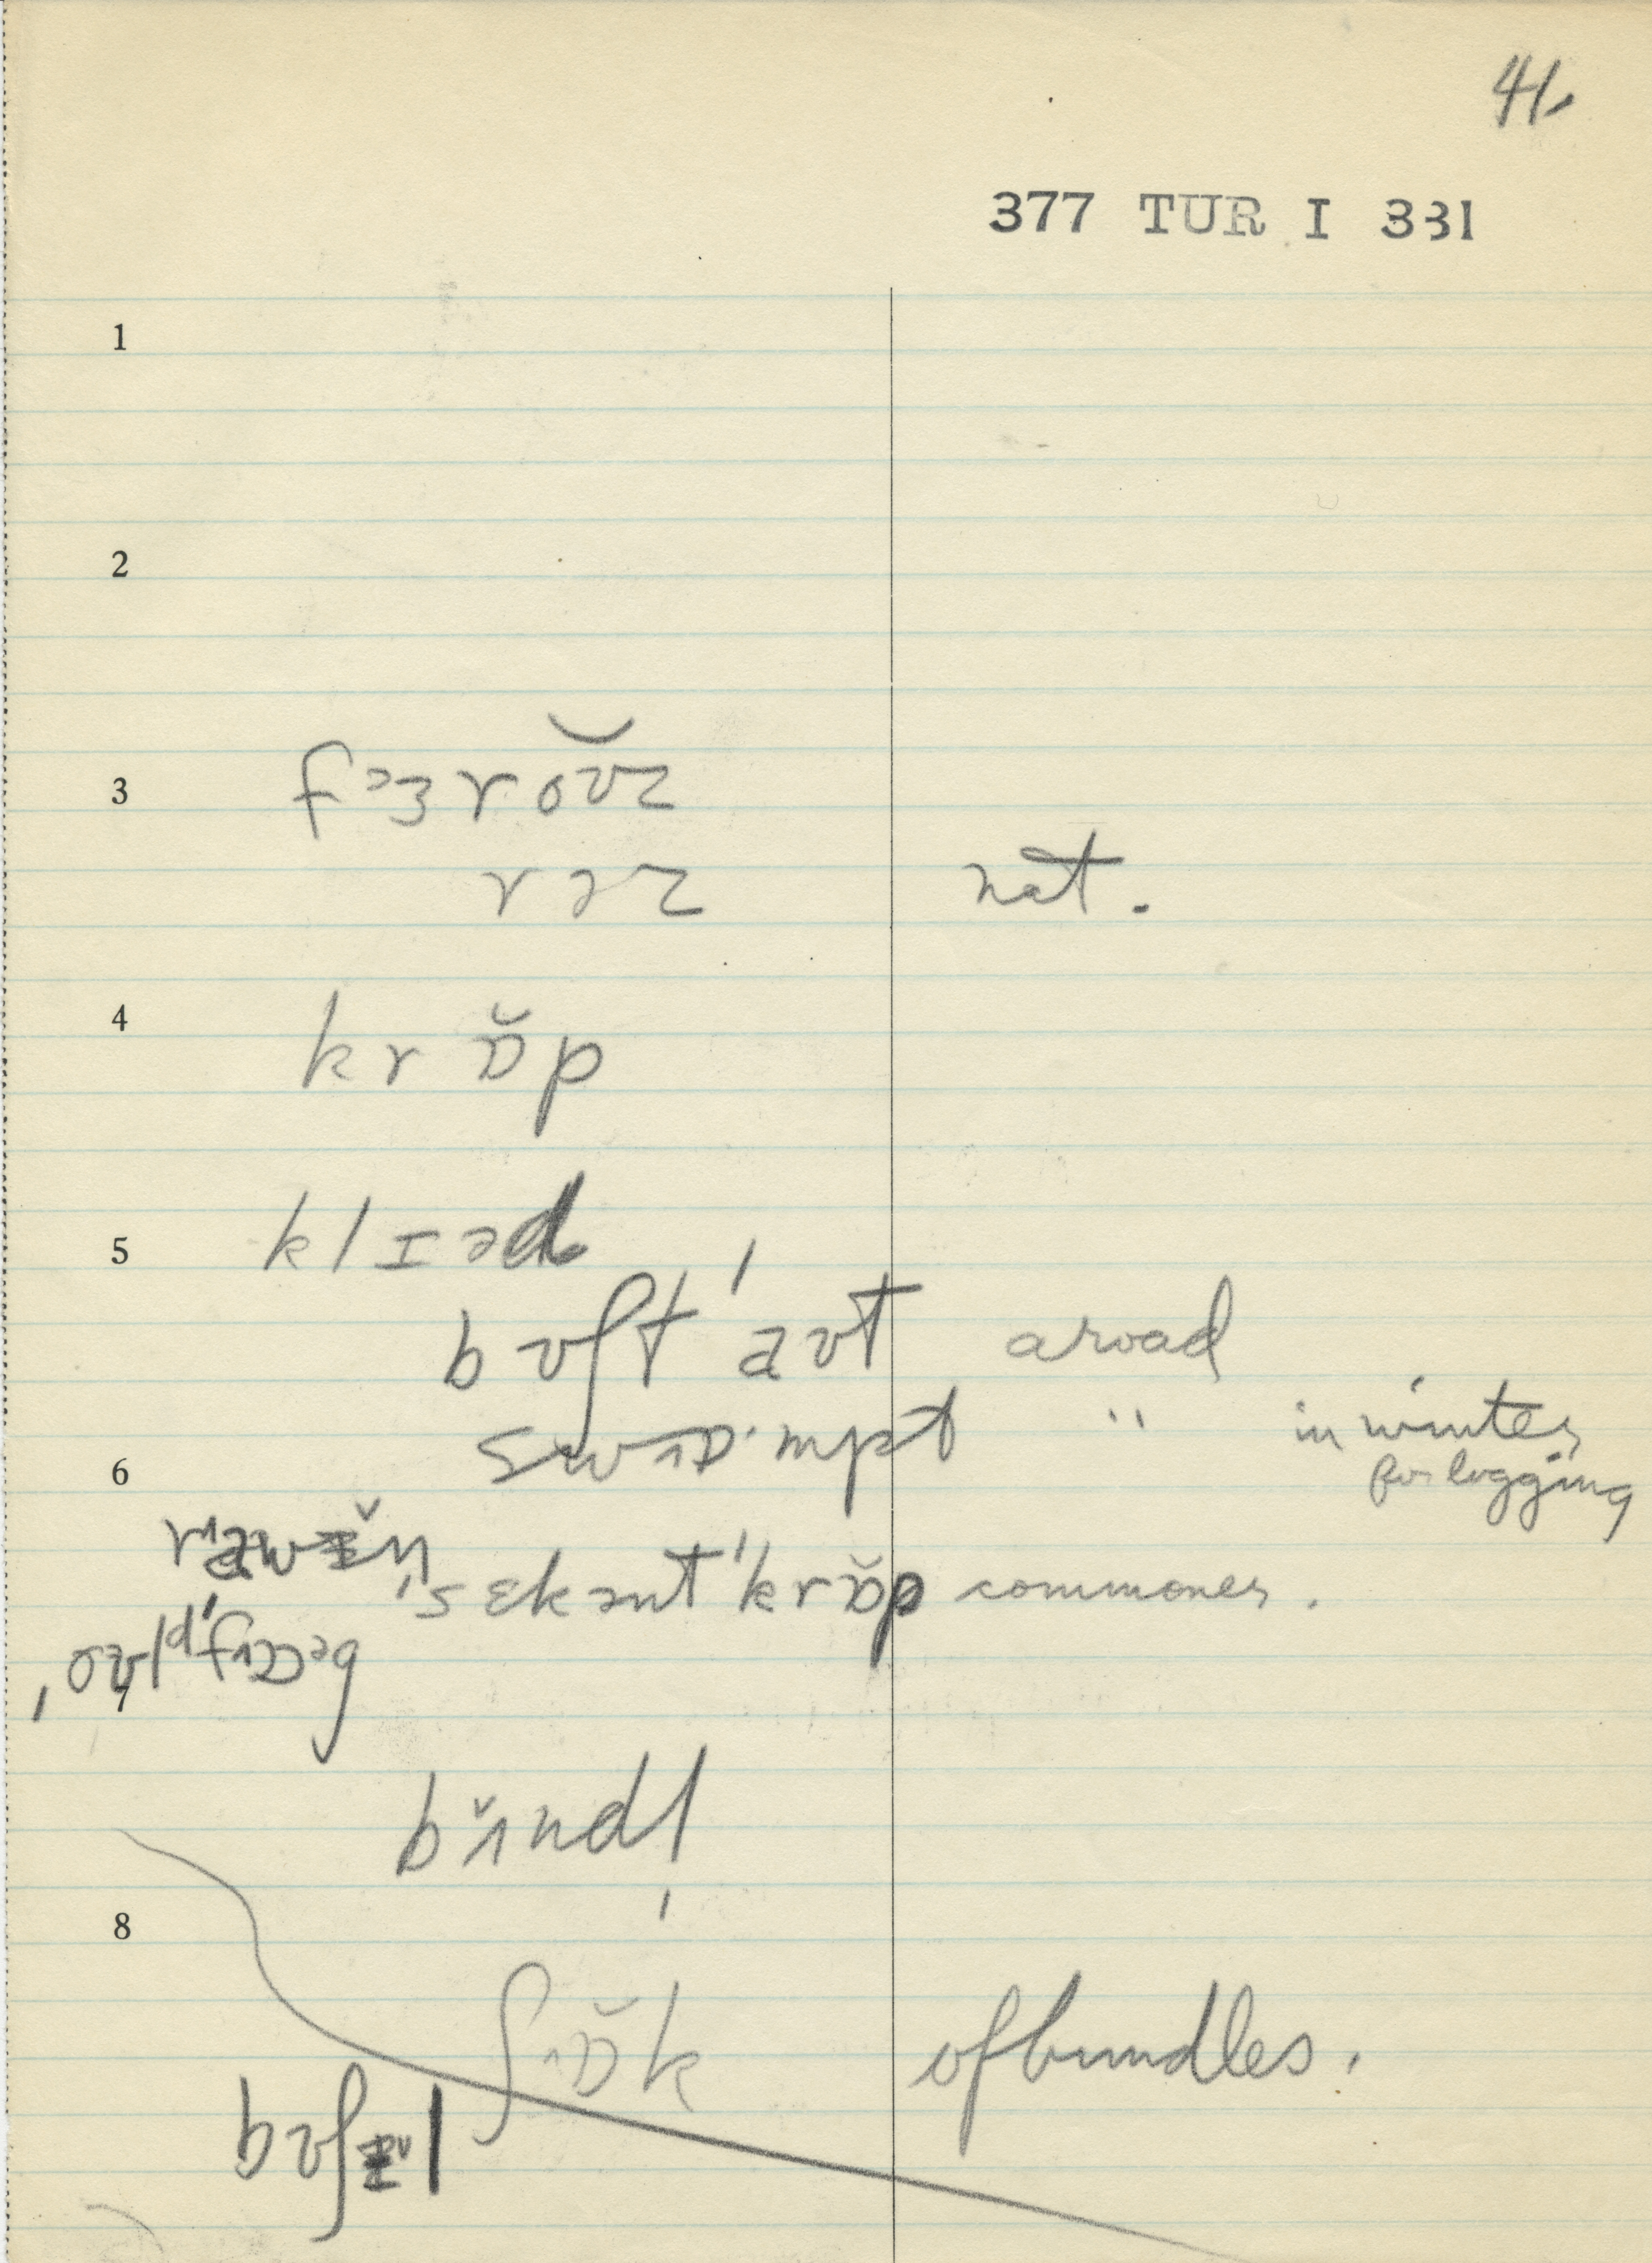 41.
377 TUR I 331
1
2
3 fɜrōʊz
rɜz nat.
4 krăp
5 klɪəd
bʊʃt' aʊt a road
swɒ·mpt " in winter
for logging
6
'sɛkənt 'krăp commoner.
7
bʌ̆ndl
8
ʃɒ̆k of bundles.
bʊʃɫ